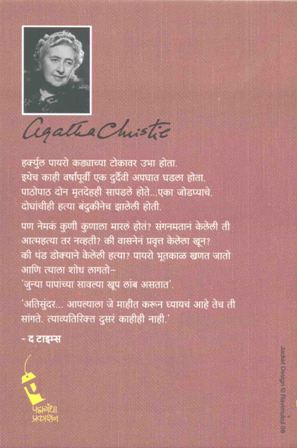 Agatha Christie
हर्क्युल पायरो कड्याच्या टोकावर उभा होता.
इथेच काही वर्षांपूर्वी एक दुर्दैवी अपघात घडला होता.
पाठोपाठ दोन मृतदेहही सापडले होते...एका जोडप्याचे.
दोघांचीही हत्या बंदुकीनेच झालेली होती.
पण नेमकं कुणी कुणाला मारलं होतं? संगनमतानं केलेली ती
आत्महत्या तर नव्हती? की वासनेनं प्रवृत्त केलेला खून?
की थंड डोक्याने केलेली हत्या? पायरो भूतकाळ खणत जातो
आणि त्याला शोध लागतो–
'जुन्या पापांच्या सावल्या खूप लांब असतात'.
'अतिसुंदर... आपल्याला जे माहीत करून घ्यायचं आहे तेच ती
सांगते. त्याव्यतिरिक्त दुसरं काहीही नाही.'
- द टाइम्स
पद्मगंधा
प्रकाशन
Jacket Design © Ravimukul 09